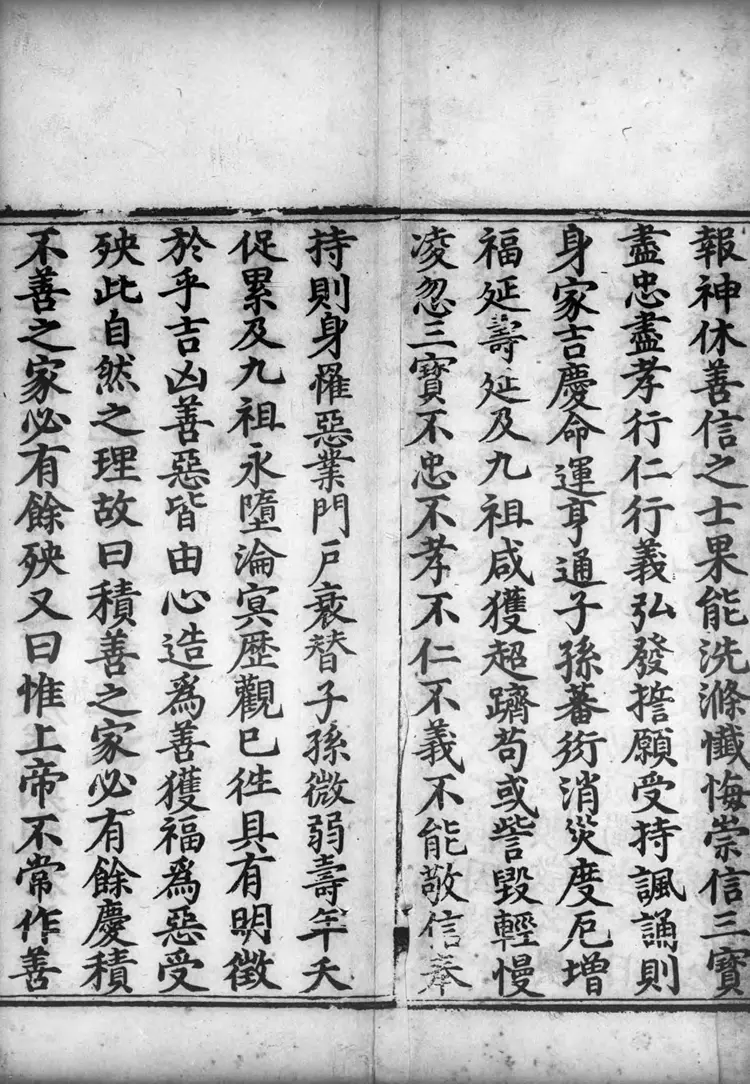 報神休善信之士果能洗滌懺悔崇信三寶
盡忠盡孝行仁行義弘發誓願受持諷誦則
身家吉慶命運亨通子孫蕃衍消災度厄增
福延壽延及九祖咸獲超躋苟或訾毀輕慢
凌忽三寶不忠不孝不仁不義不能敬信奉
持則身罹惡業門戶衰替子孫微弱壽年夭
促累及九祖永墮淪冥歷觀已徃具有明徵
於乎吉凶善惡皆由心造爲善獲福爲惡受
殃此自然之理故曰積善之家必有餘慶積
不善之家必有餘殃又曰惟上帝不常作善